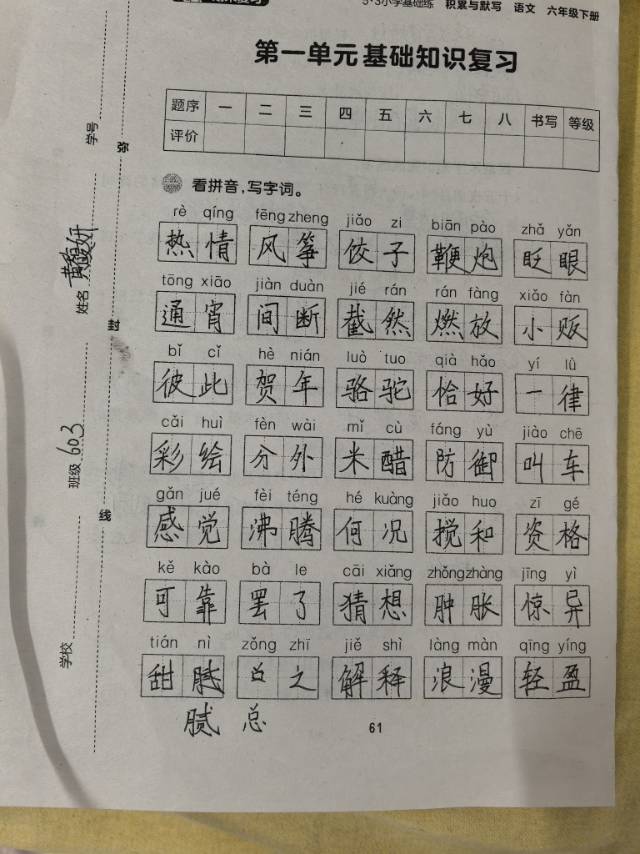 5·3小学基础练 积累与默写 语文 六年级下册
第一单元基础知识复习
题序 一 二 三 四 五 六 七 八 书写 等级
评价
看拼音,写字词。
rè qíng fēng zheng jiǎo zi biān pào zhǎ yǎn
热情 风筝 饺子 鞭炮 眨眼
tōng xiāo jiàn duàn jié rán rán fàng xiǎo fàn
通宵 间断 截然 燃放 小贩
bǐ cǐ hè nián luò tuo qià hǎo yí lǜ
彼此 贺年 骆驼 恰好 一律
cǎi huì fèn wài mǐ cù fáng yù jiào chē
彩绘 分外 米醋 防御 叫车
gǎn jué fèi téng hé kuàng jiǎo huo zī gé
感觉 沸腾 何况 搅和 资格
kě kào bà le cāi xiǎng zhǒng zhàng jīng yì
可靠 罢了 猜想 肿胀 惊异
tián nì zǒng zhī jiě shì làng màn qīng yíng
甜腻 总之 解释 浪漫 轻盈
腻 总
61
学号
姓名
班级 603
学校
弥
封
线